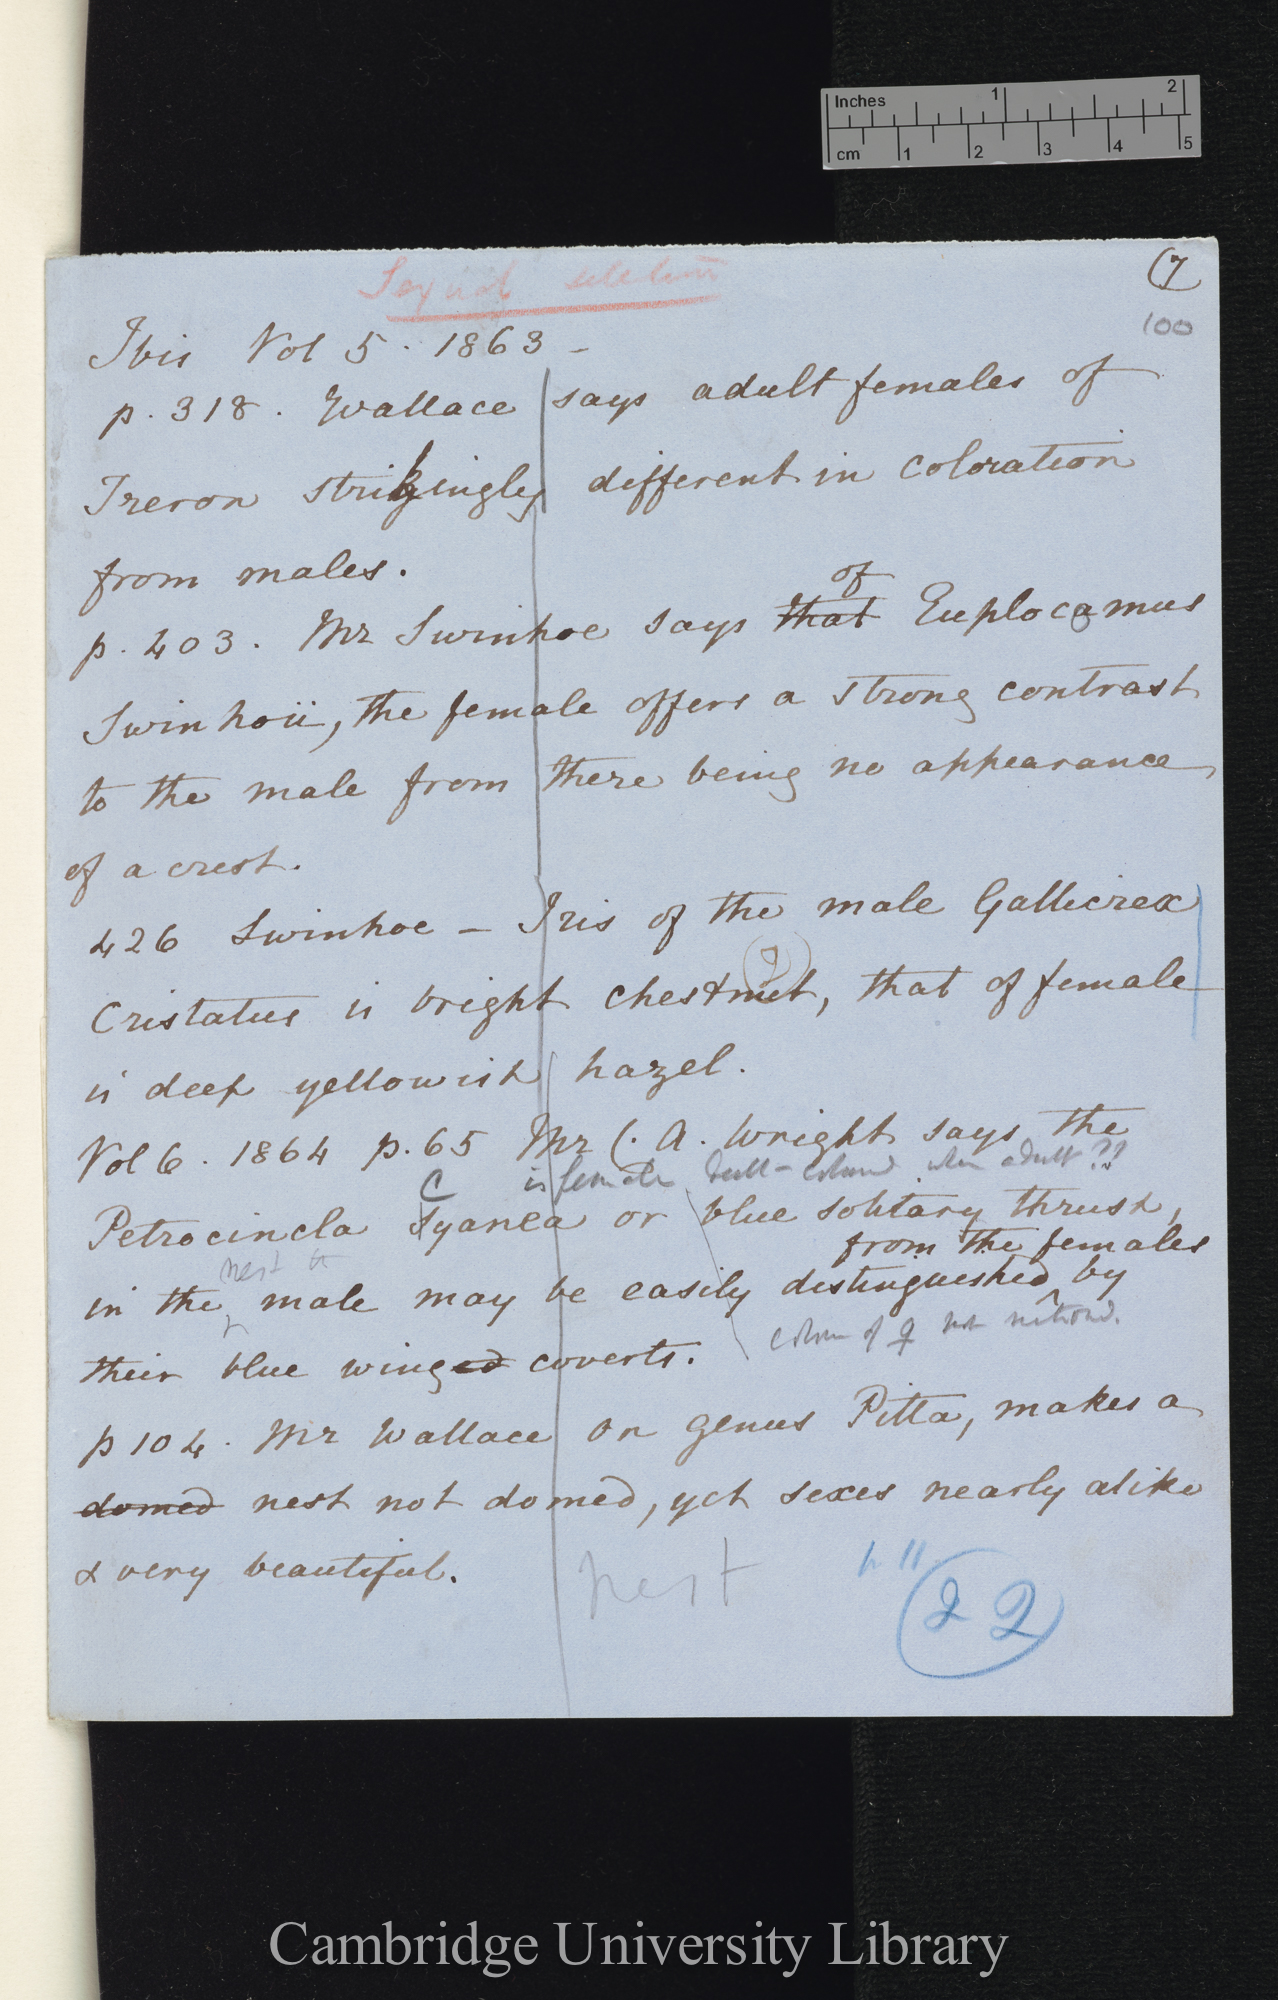 Inches 1 2
cm 1 2 3 4 5
(7
Sexual selection
100
Ibis Vol 5. 1863 -
p. 318. Wallace says adult females of
Treron strikingly different in coloration
from males.
of
p. 403. Mr Swinhoe says that Euplocamus
Swinhoii, the female offers a strong contrast
to the male from there being no appearance
of a crest.
426 Swinhoe - Iris of the male Gallicrex
Cristatus is bright chestnut, that of female
is deep yellowish hazel.
Vol 6. 1864 p. 65 Mr C. A. Wright says the
is female dull-coloured when adult??
C
Petrocincla Syanea or blue solitary thrush,
from the females
nest
in the male may be easily distinguished by
colour of ♀ not
their blue winged coverts.
p 104. Mr Wallace on genus Pitta, makes a
domed nest not domed, yet sexes nearly alike
& very beautiful.
nest
22
Cambridge University Library